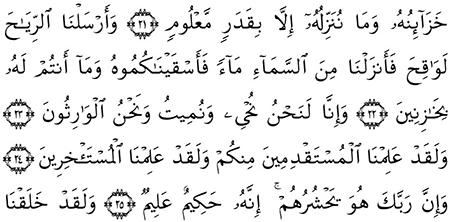 خَزَآئِنُهُۥ وَمَا نُنَزِّلُهُۥٓ إِلَّا بِقَدَرٍ مَّعْلُومٍ ﴿٢١﴾ وَأَرْسَلْنَا ٱلرِّيَـٰحَ
لَوَٰقِحَ فَأَنزَلْنَا مِنَ ٱلسَّمَآءِ مَآءً فَأَسْقَيْنَـٰكُمُوهُ وَمَآ أَنتُمْ لَهُۥ
بِخَـٰزِنِينَ ﴿٢٢﴾ وَإِنَّا لَنَحْنُ نُحْىِۦ وَنُمِيتُ وَنَحْنُ ٱلْوَٰرِثُونَ ﴿٢٣﴾
وَلَقَدْ عَلِمْنَا ٱلْمُسْتَقْدِمِينَ مِنكُمْ وَلَقَدْ عَلِمْنَا ٱلْمُسْتَـْٔخِرِينَ ﴿٢٤﴾
وَإِنَّ رَبَّكَ هُوَ يَحْشُرُهُمْ ۚ إِنَّهُۥ حَكِيمٌ عَلِيمٌ ﴿٢٥﴾ وَلَقَدْ خَلَقْنَا